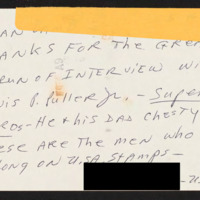 AN
HANKS FOR THE GREA
RUN OF INTERVIEW WI
IS P. PULLER JR. - SUPER
ROS - HE & HIS DAD CHESTY
ESE ARE THE MEN WHO
LONG ON U.S.A. STAMPS -